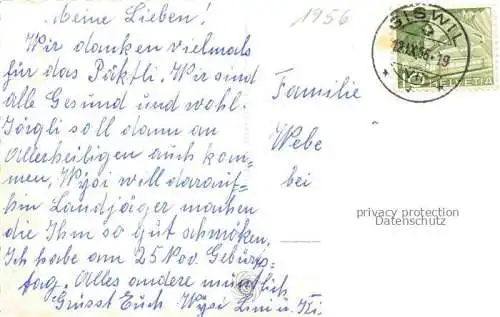 Meine Lieben!
Wir danken vielmals
für das Päktli. Wir sind
alle Gesund und wohl.
Jörgli soll dann an
Allerheiligen auch kom=
men, Wysi will darauf=
hin Landjäger machen
die Ihm so gut schmöken.
Ich habe am 25 Nov. Geburts=
tag. Alles andere mündlich
Grüsst Euch Wysi Lini u.
1956
GISWIL
HELVETIA
Familie
Webe
bei
privacy protection